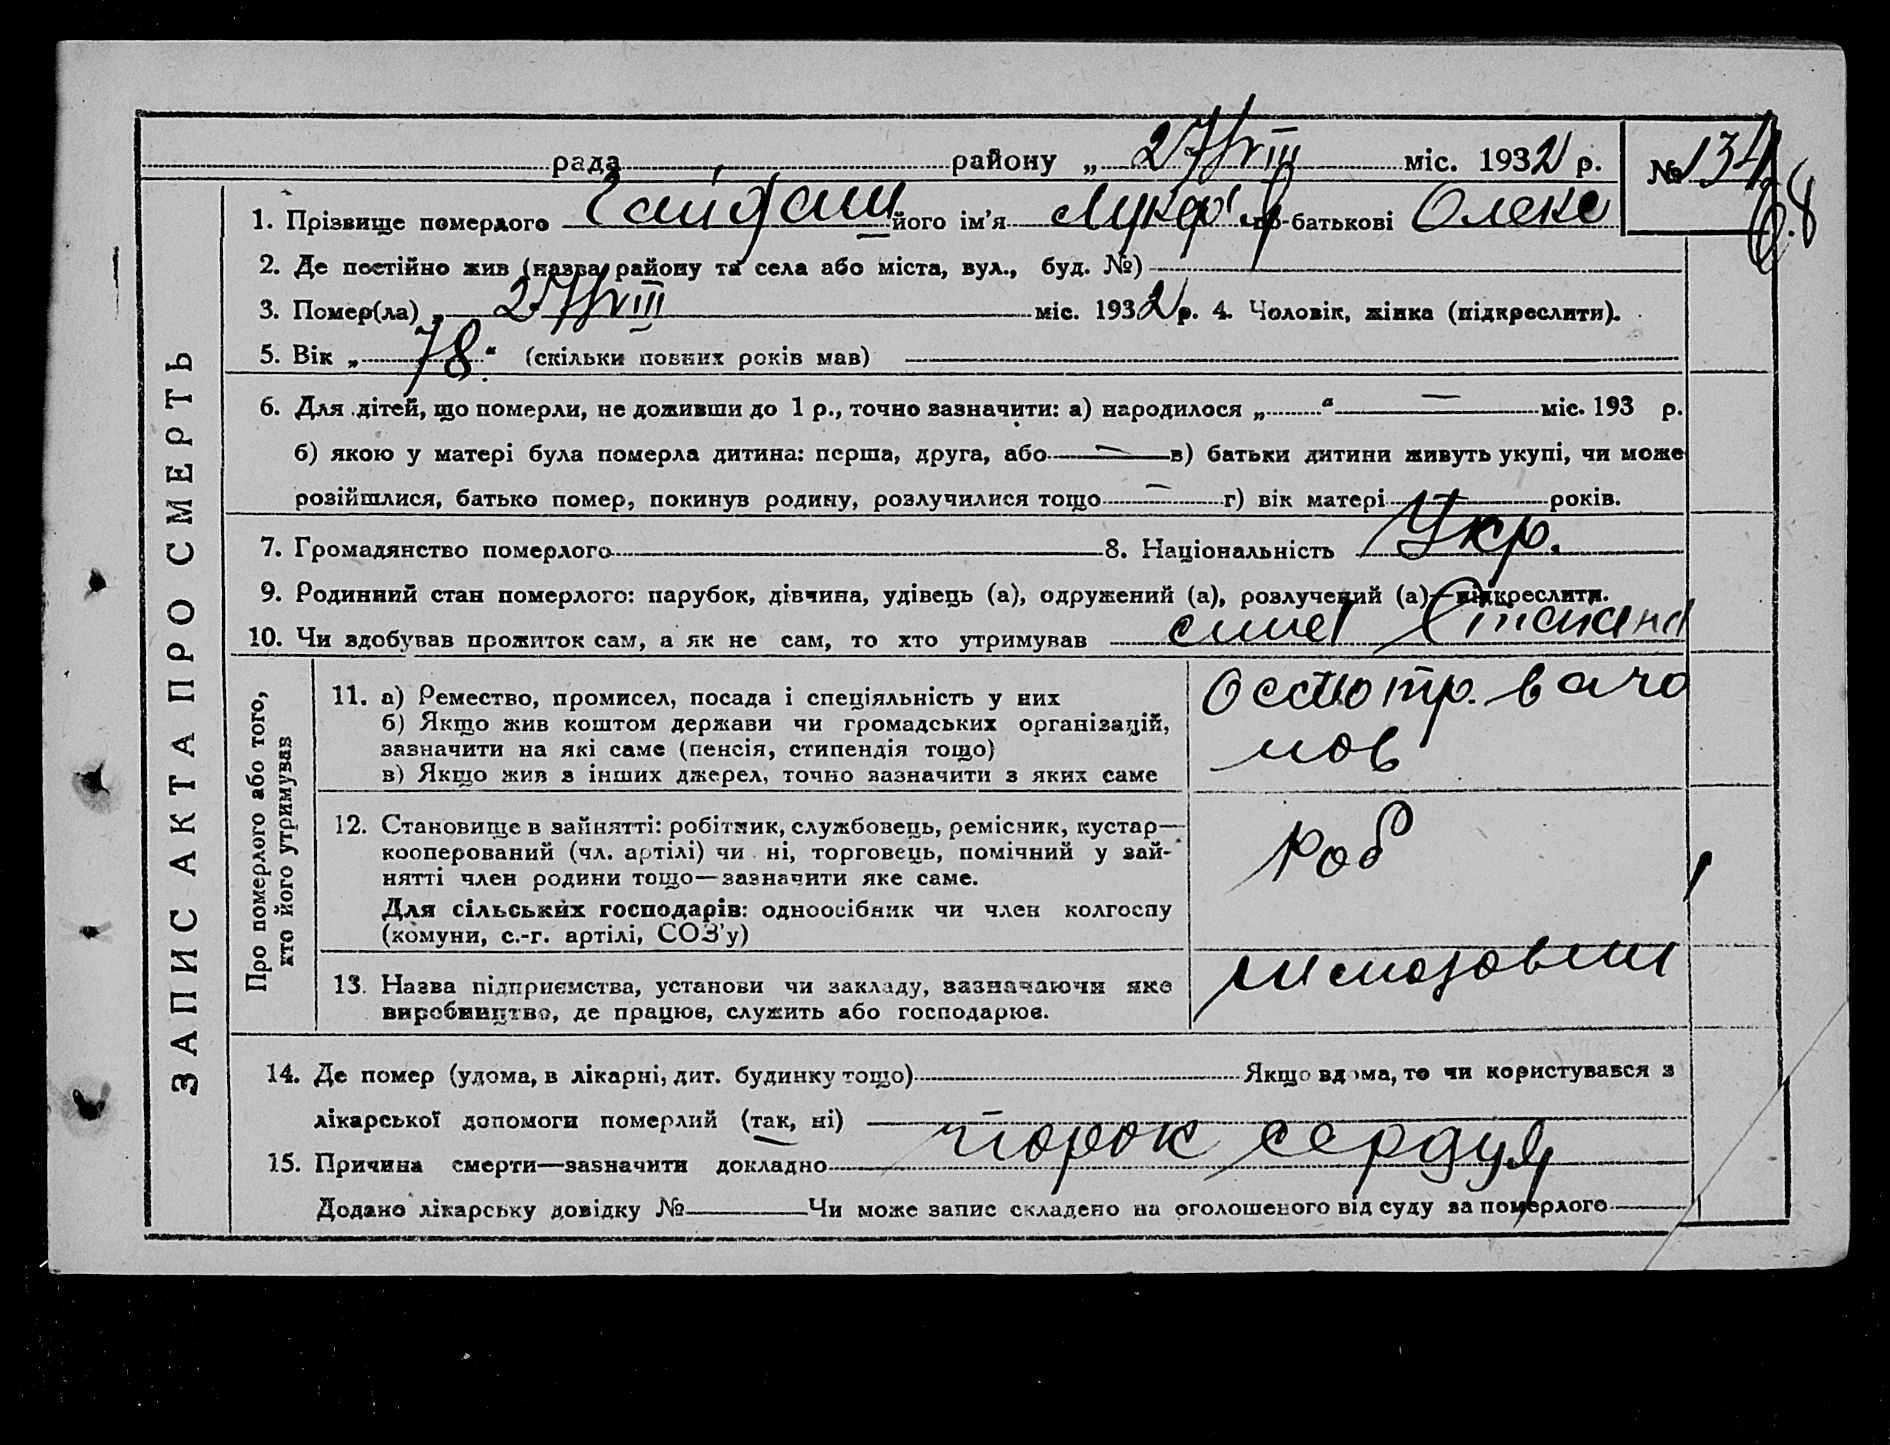 рада району „ 27/VIII міс. 1932 р. № 134
68
ЗАПИС АКТА ПРО СМЕРТЬ
1. Прізвище померлого Гайдаш його ім'я Лукер. по-батькові Олекс
2. Де постійно жив (назва району та села або міста, вул., буд. №)
3. Помер(ла) „ 27/VIII міс. 1932 р. 4. Чоловік, жінка (підкреслити).
5. Вік „ 78 “ (скільки повних років мав)
6. Для дітей, що померли, не доживши до 1 р., точно зазначити: а) народилося „ “ — міс. 193 р.
б) якою у матері була померла дитина: перша, друга, або — в) батьки дитини живуть укупі, чи може
розійшлися, батько помер, покинув родину, розлучилися тощо — г) вік матері — років.
7. Громадянство померлого 8. Національність Укр.
9. Родинний стан померлого: парубок, дівчина, удівець (а), одружений (а), розлучений (а)—підкреслити.
10. Чи здобував прожиток сам, а як не сам, то хто утримував Степана
Про померлого або того,
хто його утримував
11. а) Ремество, промисел, посада і спеціяльність у них
б) Якщо жив коштом держави чи громадських організацій,
зазначити на які саме (пенсія, стипендія тощо)
в) Якщо жив з інших джерел, точно зазначити з яких саме
осмотр. ваго
нов
12. Становище в зайнятті: робітник, службовець, ремісник, кустар—
кооперований (чл. артілі) чи ні, торговець, помічний у зай-
нятті член родини тощо—зазначити яке саме.
Для сільських господарів: одноосібник чи член колгоспу
(комуни, с.-г. артілі, СОЗ'у)
роб
13. Назва підприємства, установи чи закладу, зазначаючи яке
виробництво, де працює, служить або господарює.
14. Де помер (удома, в лікарні, дит. будинку тощо) Якщо вдома, то чи користувався з
лікарської допомоги померлий (так, ні) —
15. Причина смерти—зазначити докладно порок сердця
Додано лікарську довідку № Чи може запис складено на оголошеного від суду за померлого